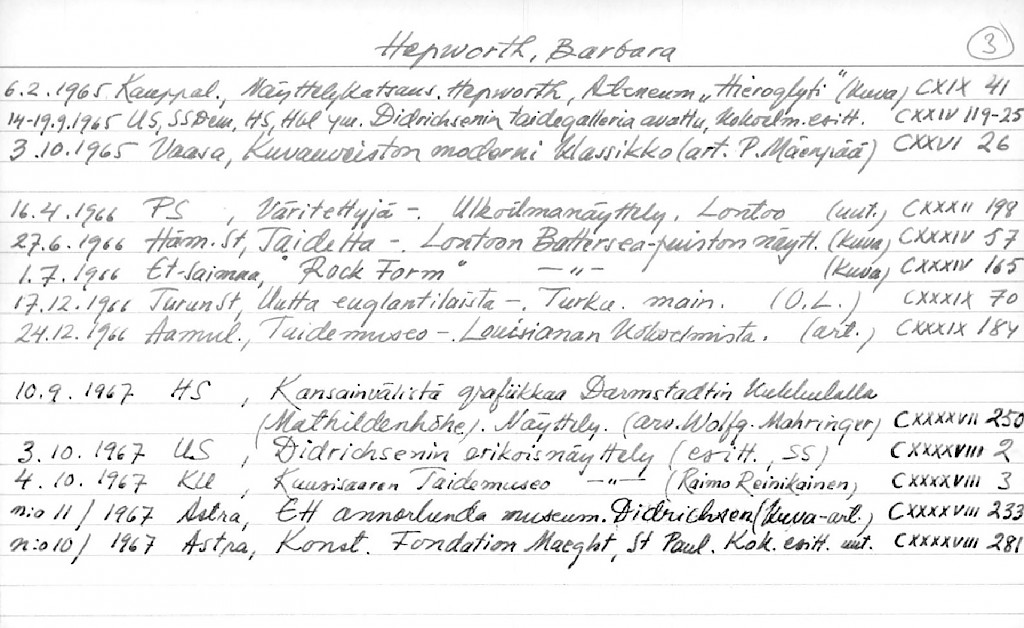 Hepworth, Barbara
3
6.2.1965 Kauppal., Näyttelykatsaus. Hepworth, Ateneum „Hieroglyfi" (kuva) CXIX 41
14-19.9.1965 US, SSDem, HS, Hbl ym. Didrichsenin taidegalleria avattu, kokoelm. esitt. CXXIV 119-25
3.10.1965 Vaasa, Kuvanveiston moderni klassikko (art. P. Mäenpää) CXXVI 26
16.4.1966 PS, Väritettyjä -. Ulkoilmanäyttely. Lontoo (uut.) CXXXII 198
27.6.1966 Häm. St, Taidetta -. Lontoon Battersea-puiston näytt. (kuva) CXXXIV 57
1.7.1966 Et-Saimaa, "Rock Form" -„- (kuva) CXXXIV 165
17.12.1966 TurunSt, Uutta englantilaista -. Turku. main. (O.L.) CXXXIX 70
24.12.1966 Aamul., Taidemuseo -. Louisianan kokoelmista. (art.) CXXXIX 184
10.9.1967 HS, Kansainvälistä grafiikkaa Darmstadtin kukkulalla
(Mathildenhöhe). Näyttely. (arv. Wolfg. Mahringer) CXXXXVII 250
3.10.1967 US, Didrichsenin erikoisnäyttely (esitt., SS) CXXXXVIII 2
4.10.1967 KU, Kuusisaaren Taidemuseo -„- (Raimo Reinikainen) CXXXXVIII 3
n:o 11/1967 Astra, Ett annorlunda museum. Didrichsen (kuva-art.) CXXXXVIII 233
n:o 10/1967 Astra, Konst. Fondation Maeght, St Paul. Kok. esitt. uut. CXXXXVIII 281